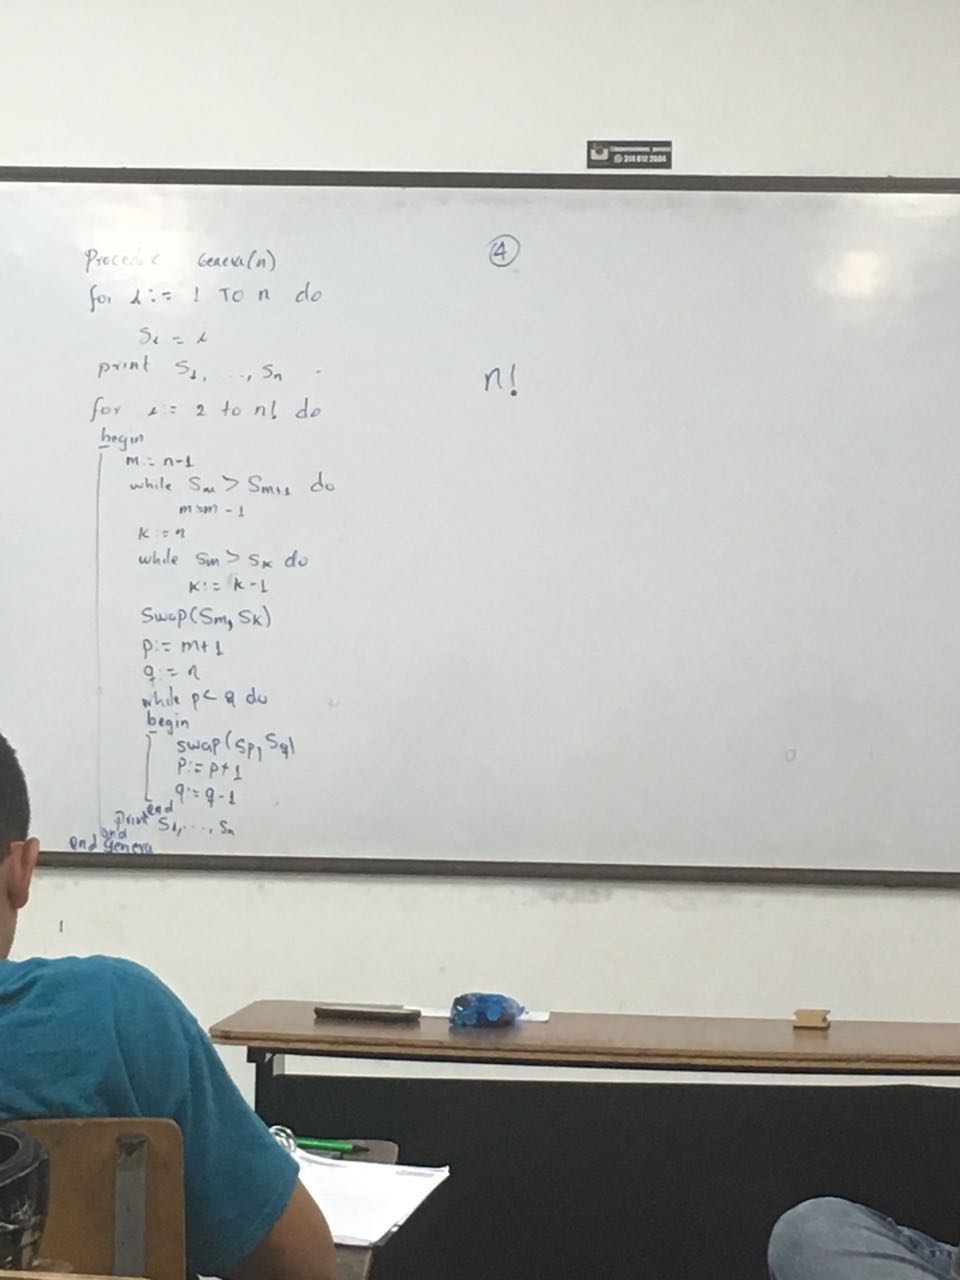 Procedure Genera(n)
for i := 1 TO n do
Si = i
print S1, ..., Sn
for i := 2 to n! do
begin
m := n-1
while Sm > Sm+1 do
m:=m-1
k := n
while Sm > Sk do
k := k-1
Swap(Sm, Sk)
p := m+1
q := n
while p< q do
begin
swap(Sp, Sq)
p:= p+1
q:= q-1
end
print S1, ..., Sn
end
end Genera
4
n!
314 612 2604